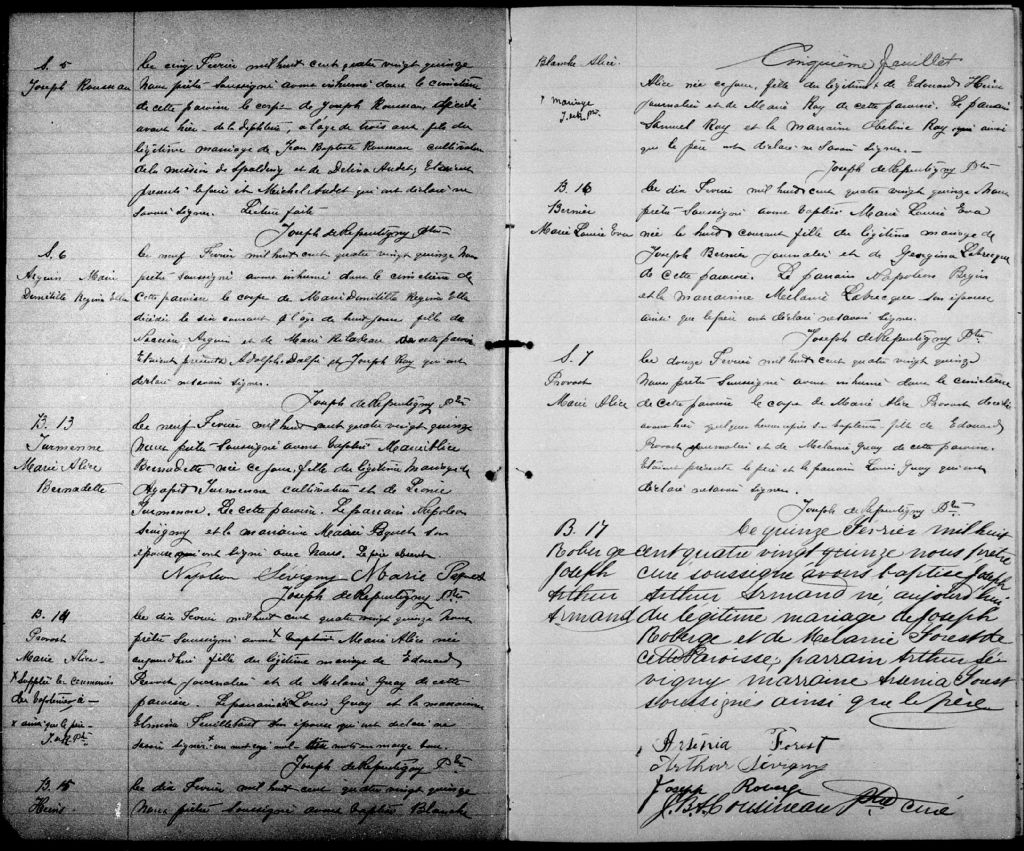 S. 5
Joseph Rousseau
Le cinq Fevrier mil huit cent quatre vingt quinze
Nous prêtre soussigné avons inhumé dans le cimetière
de cette paroisse le corps de Joseph Rousseau, décédé
avant hier de la diphterie, à l'âge de trois ans fils du
légitime mariage de Jean Baptiste Rousseau cultivateur
de la mission de Spalding et de Delina Audet, Etaient
présents le père et Michel Audet qui ont déclaré ne
savoir signer. Lecture faite
Joseph de Repentigny Ptre
S. 6
Arguin Marie
Domitille Regina Ella
Le neuf Fevrier mil huit cent quatre vingt quinze Nous
prêtre soussigné avons inhumé dans le cimetière de
cette paroisse le corps de Marie Domitille Regina Ella
décédée le six courant à l'âge de huit jours fille de
Arguin et de Marie de cette paroisse
Etaient présents Adolphe et Joseph Roy qui ont
déclaré ne savoir signer.
Joseph de Repentigny Ptre
B. 13
Turmenne
Marie Alice
Bernadette
Le neuf Fevrier mil huit cent quatre vingt quinze
Nous prêtre soussigné avons baptisé Marie Alice
Bernadette née ce jour, fille du légitime mariage de
Agapit Turmenne cultivateur et de Leonie
Turmenne. De cette paroisse. Le parrain Napoleon
Sevigny et la marraine Marie son
épouse qui ont signé avec Nous. Le père absent
Napoleon Sévigny Marie
Joseph de Repentigny Ptre
B. 14
Provost
Marie Alice
x supplée les ceremonies
du baptême à
x ainsi que le père
J. de R. Ptre
Le dix Fevrier mil huit cent quatre vingt quinze Nous
prêtre soussigné avons x Marie Alice née
aujourd'hui fille du légitime mariage de Edouard
Provost journalier et de Melanie Guay de cette
paroisse. Le parrain Louis Guay et la marraine
Elmina Feuilletant son épouse qui ont déclaré ne
savoir signer x un mot rayé nul mots en marge bons.
Joseph de Repentigny Ptre
B. 15
Heins
Le dix Fevrier mil huit cent quatre vingt quinze
Nous prêtre soussigné avons baptisé Blanche
Cinquième feuillet
Blanche Alice.
x mariage
J. de R. Ptre
Alice née ce jour, fille du légitime x de Edouard Heins
journalier et de Marie Roy de cette paroisse. Le parrain
Samuel Roy et la marraine Obeline Roy ainsi
que le père ont déclaré ne savoir signer.
Joseph de Repentigny Ptre
B. 16
Bernier
Marie Louise Eva
Le dix Fevrier mil huit cent quatre vingt quinze Nous
prêtre soussigné avons baptisé Marie Louise Eva
née le huit courant fille du légitime mariage de
Joseph Bernier journalier et de Georgina Labrecque
de cette paroisse. Le parrain Napoléon Begin
et la marraine Melanie Labrecque son épouse
ainsi que le père ont déclaré ne savoir signer.
Joseph de Repentigny Ptre
S. 7
Provost
Marie Alice
Le douze Fevrier mil huit cent quatre vingt quinze
Nous prêtre soussigné avons inhumé dans le cimetière
de cette paroisse le corps de Marie Alice Provost décédée
avant hier quelques heures après son baptême fille de Edouard
Provost journalier et de Melanie Guay de cette paroisse.
Etaient présents le père et le parrain Louis Guay qui ont
déclaré ne savoir signer.
Joseph de Repentigny Ptre
B. 17
Roberge
Joseph
Arthur
Armand
Le quinze Février mil huit
cent quatre vingt quinze nous prêtre
curé soussigné avons baptisé Joseph
Arthur Armand né, aujourd'hui
du légitime mariage de Joseph
Roberge et de Melanie Forest de
cette Paroisse, parrain Arthur Sé
vigny marraine Arsenia Forest
soussignés ainsi que le père
Arsénia Forest
Arthur Sévigny
Joseph Roberge
J. B. A. Cousineau Ptre curé